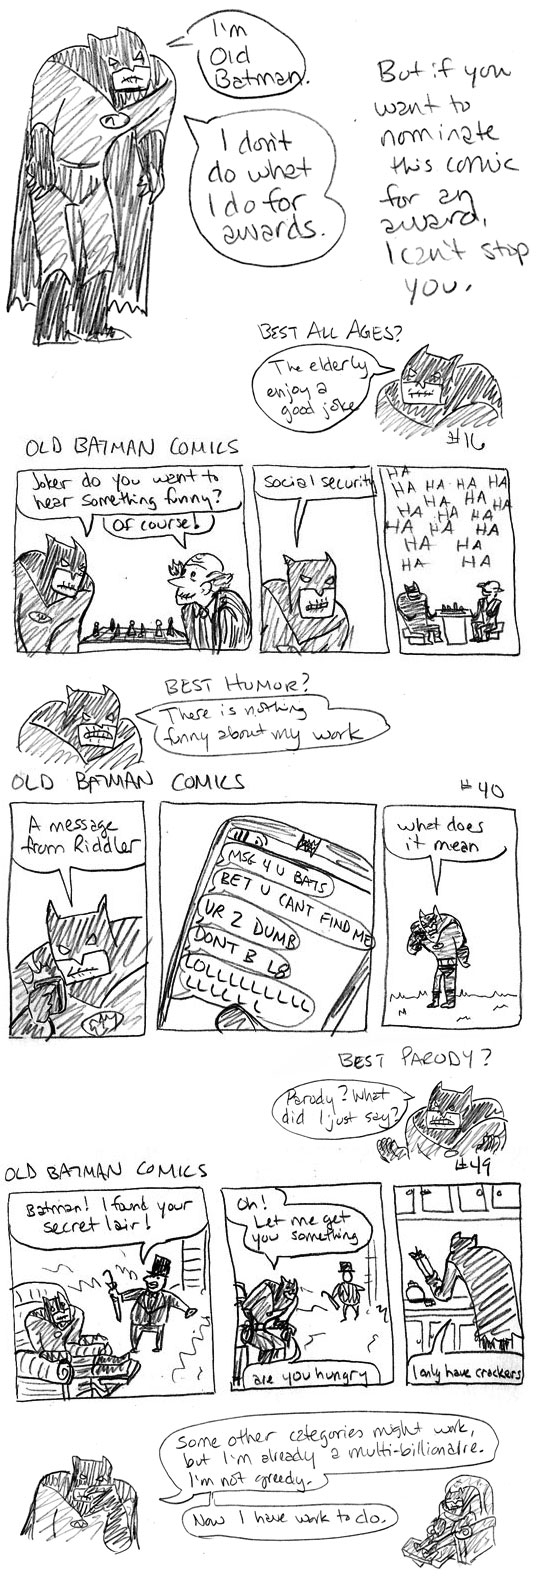 I'm
Old
Batman.
I don't
do what
I do for
awards.
But if you
want to
nominate
this comic
for an
award,
I can't stop
you.
BEST ALL AGES?
The elderly
enjoy a
good joke
OLD BATMAN COMICS
#16
Joker do you want to
hear something funny?
Of course!
Social security
HA
HA HA HA HA
HA HA
HA HA HA
HA HA HA
HA HA
HA HA
BEST HUMOR?
There is nothing
funny about my work
OLD BATMAN COMICS
#40
A message
from Riddler
MSG 4 U BATS
BET U CANT FIND ME
UR 2 DUMB
DONT B L8
LOLLLLLLLLLL
LLLLLL
what does
it mean
BEST PARODY?
Parody? What
did I just say?
OLD BATMAN COMICS
#49
Batman! I found your
secret lair!
Oh!
Let me get
you something
are you hungry
I only have crackers
Some other categories might work,
but I'm already a multi-billionaire.
I'm not greedy.
Now I have work to do.